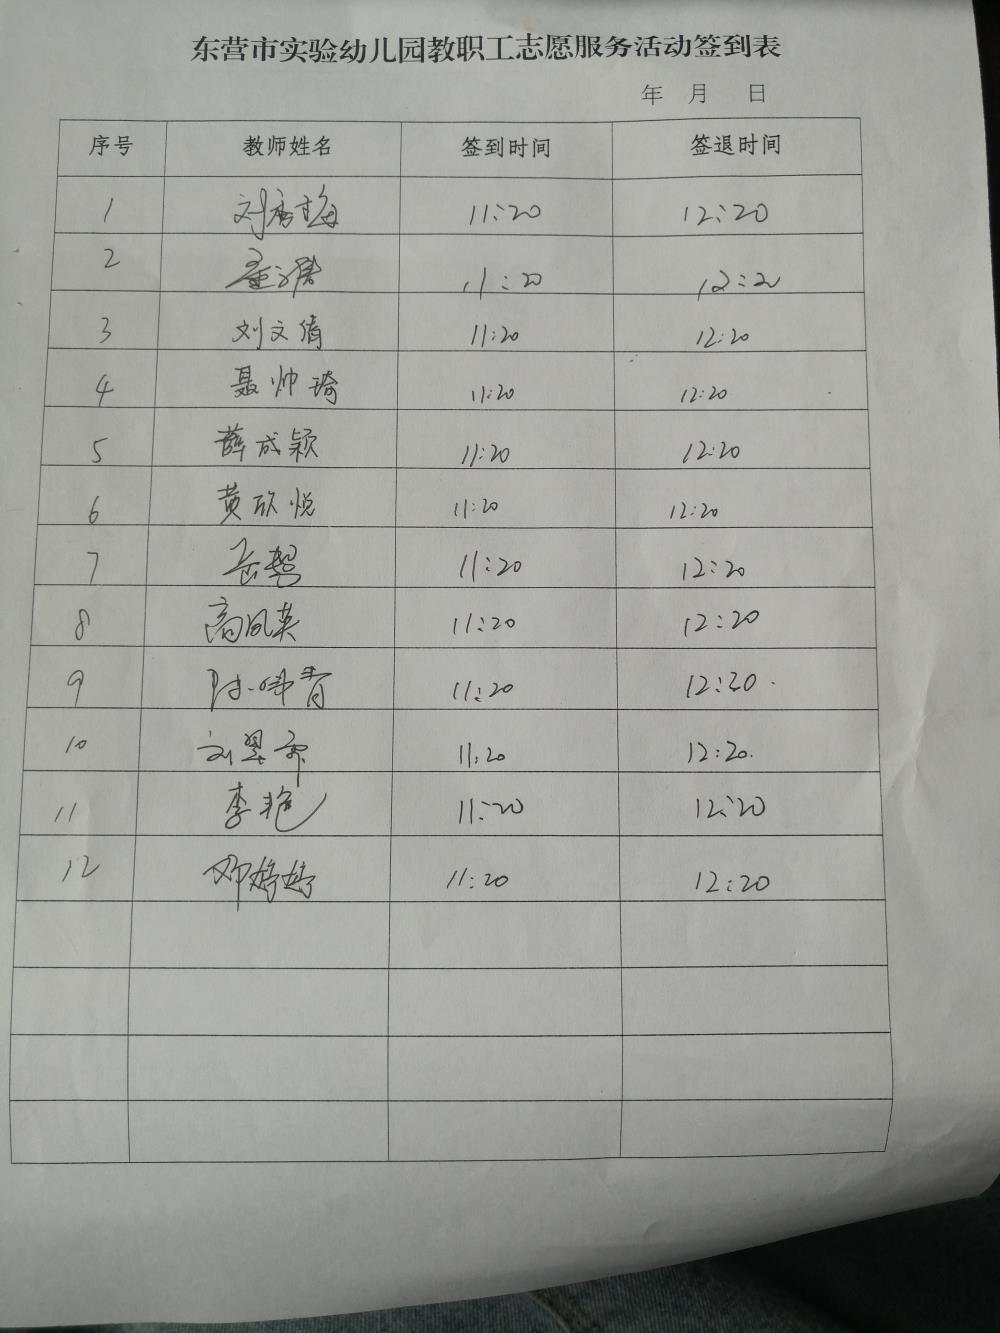 东营市实验幼儿园教职工志愿服务活动签到表
年 月 日
序号 教师姓名 签到时间 签退时间
1 刘 梅 11:20 12:20
2 11:20 12:20
3 刘文倩 11:20 12:20
4 聂帅琦 11:20 12:20
5 薛成颖 11:20 12:20
6 黄欣悦 11:20 12:20
7 岳 11:20 12:20
8 高凤英 11:20 12:20
9 陈 青 11:20 12:20.
10 刘翠 11:20 12:20.
11 李艳 11:20 12:20
12 邓婷婷 11:20 12:20